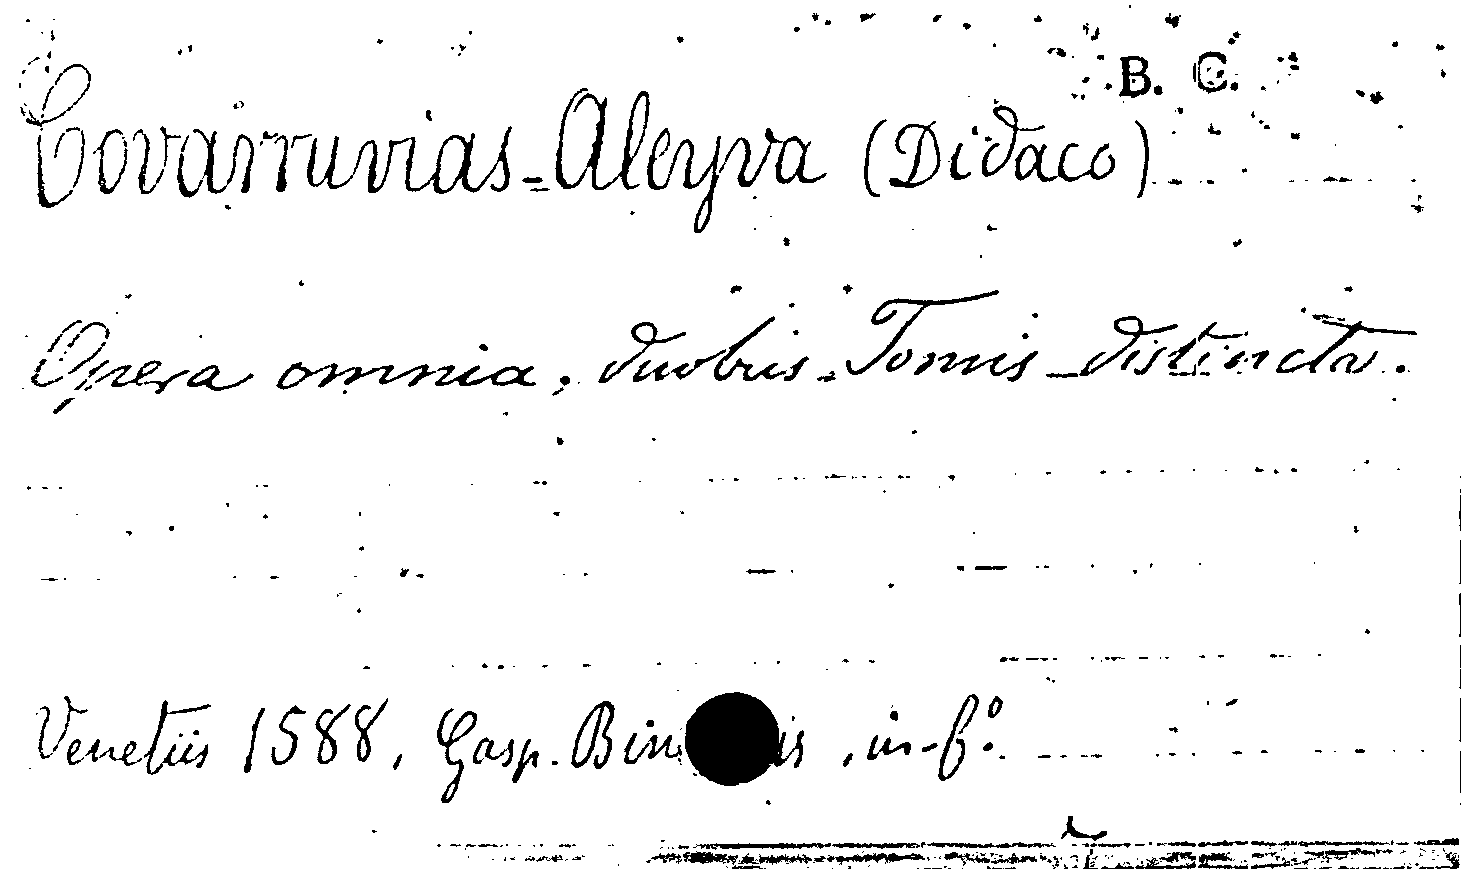 B. C.
Covarruvias-Aleyva (Didaco)
Opera omnia, duobus Tomis distincta.
Venetiis 1588, Gasp. in-fº.